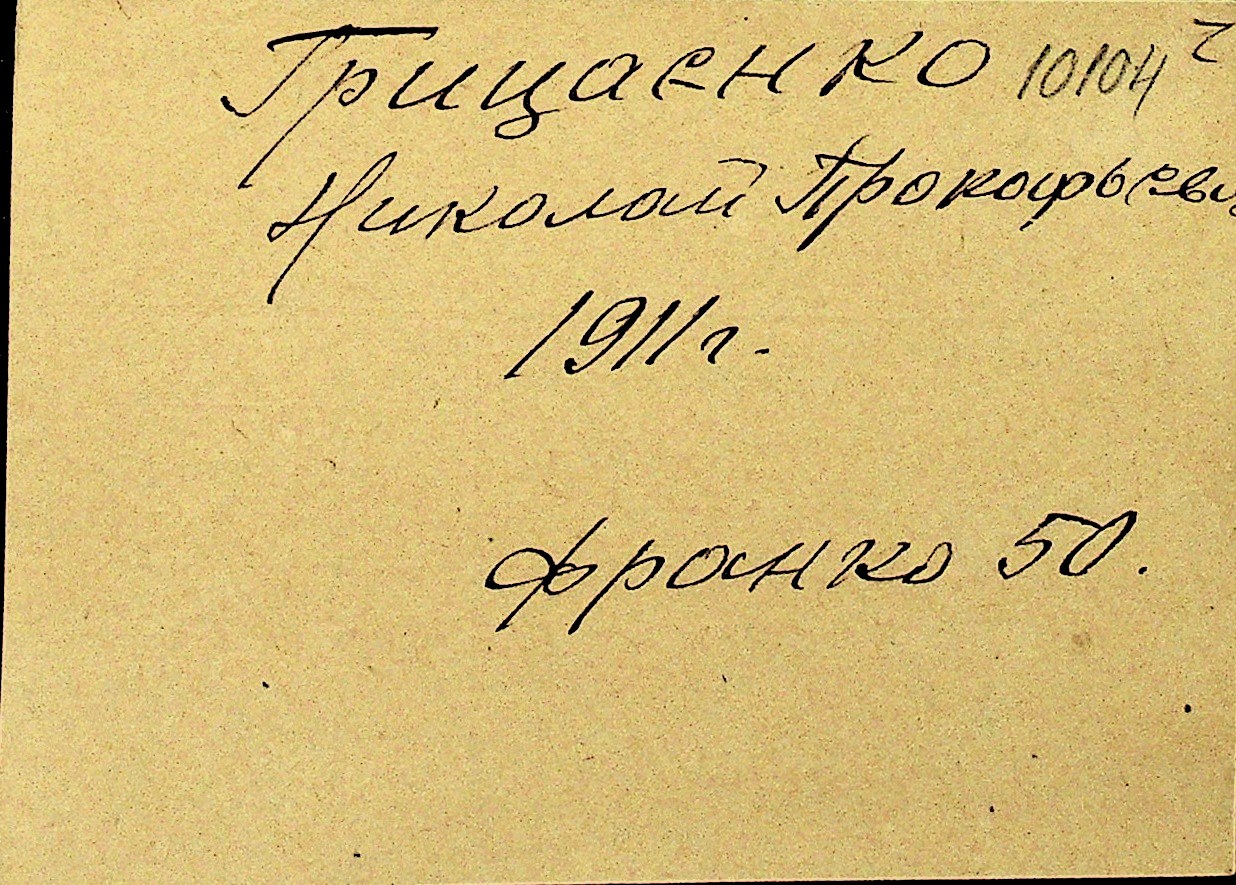 Грицаенко 10104
Николай Прокофьеви
1911 г.
Франко 50.